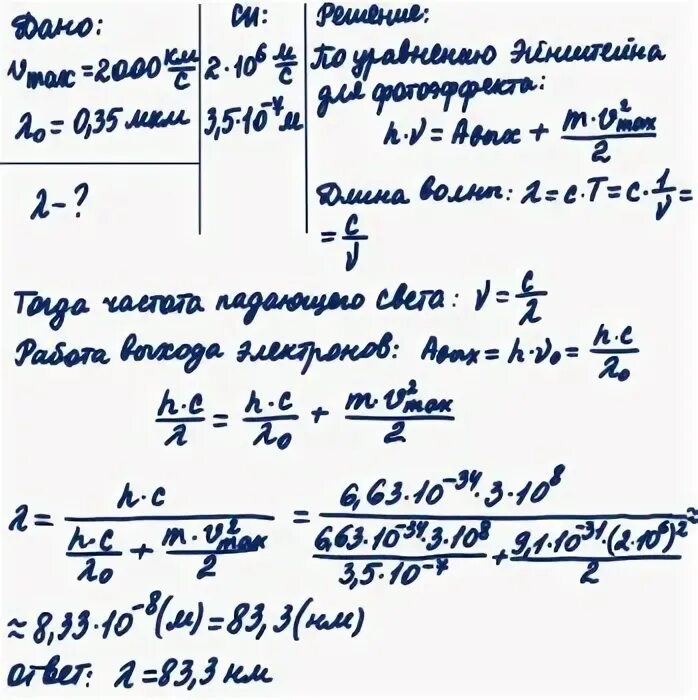 Дано:
υmax = 2000 км/с
λ₀ = 0,35 мкм
λ - ?
СИ:
2·10⁶ м/с
3,5·10⁻⁷ м
Решение:
По уравнению Эйнштейна
для фотоэффекта:
h·ν = Aвых + m·υ²max/2
Длина волны: λ = c·T = c·1/ν =
= c/ν
Тогда частота падающего света: ν = c/λ
Работа выхода электронов: Aвых = h·ν₀ = h·c/λ₀
h·c/λ = h·c/λ₀ + m·υ²max/2
λ = h·c/(h·c/λ₀ + m·υ²max/2) = 6,63·10⁻³⁴·3·10⁸/(6,63·10⁻³⁴·3·10⁸/3,5·10⁻⁷ + 9,1·10⁻³¹·(2·10⁶)²/2) ≈
≈ 8,33·10⁻⁸ (м) = 83,3 (нм)
ответ: λ = 83,3 нм